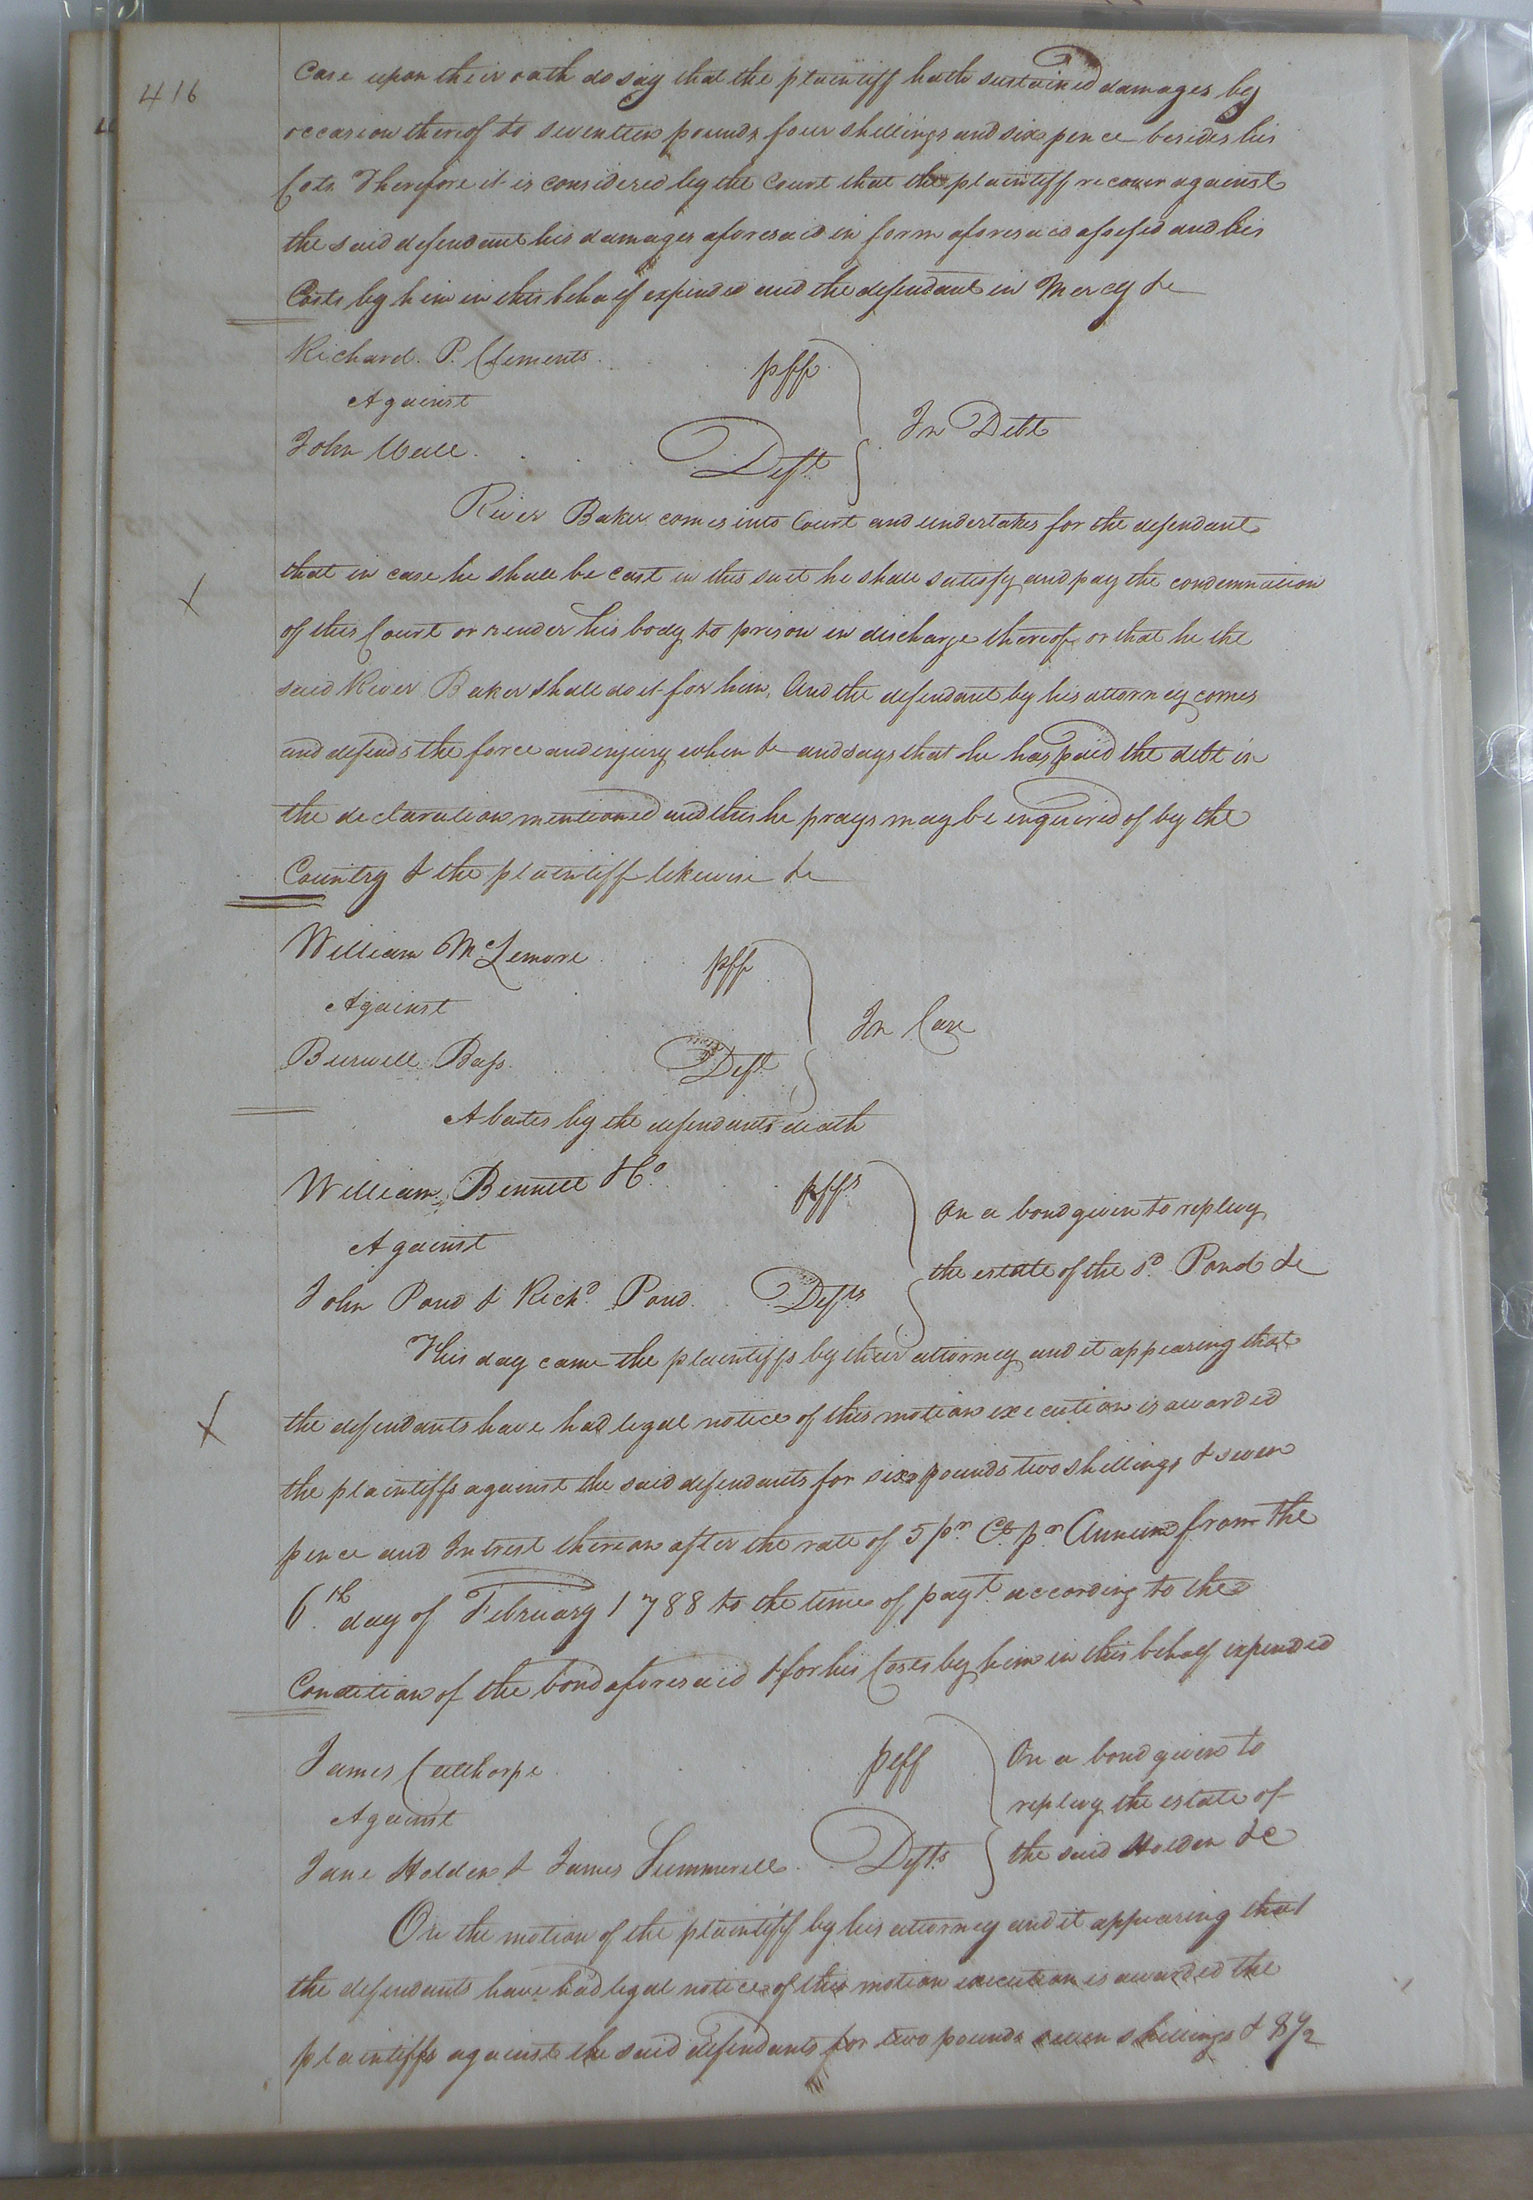 416
Case upon their oath do say that the plaintiff hath sustained damages by
occasion thereof to seventeen pounds four shillings and six pence besides his
Costs Therefore it is considered by the Court that the plaintiff recover against
the said defendant his damages aforesaid in form aforesaid assessed and his
Costs by him in this behalf expended and the defendant in Mercy &c
Richard. P. Clements. pff
Against
In Debt
John Deft
River Baker comes into Court and undertakes for the defendant
that in case he shall be cast in this suit he shall satisfy and pay the condemnation
of this Court or render his body to prison in discharge thereof or that he the
said River Baker shall do it for him, And the defendant by his attorney comes
and defends the force and injury when &c and says that he has paid the debt in
the declaration mentioned and this he prays may be enquired of by the
Country & the plaintiff likewise &c
William McLemore pff
Against
In Case
Burwell Bass. Deft
Abates by the defendants death
William Bennett & Co. pffs
On a bond given to replevy
Against
the estate of the sd. Pond &c
John Pond & Richd. Pond. Defts
This day came the plaintiffs by their attorney and it appearing that
the defendants have had legal notice of this motion execution is awarded
the plaintiffs against the said defendants for six pounds two shillings & seven
pence and Intrest thereon after the rate of 5 pr. Ct. pr Annum from the
6.th day of February 1788 to the time of payt. according to the
Condition of the bond aforesaid & for his Costs by him in this behalf expended
James Calthorpe plff
On a bond given to
Against
replevy the estate of
Jane Holden & James Summerell. Defts.
the said Holden &c
On the motion of the plaintiff by his attorney and it appearing that
the defendants have had legal notice of this motion execution is awarded the
plaintiffs against the said defendants for two pounds seven shillings & 8½